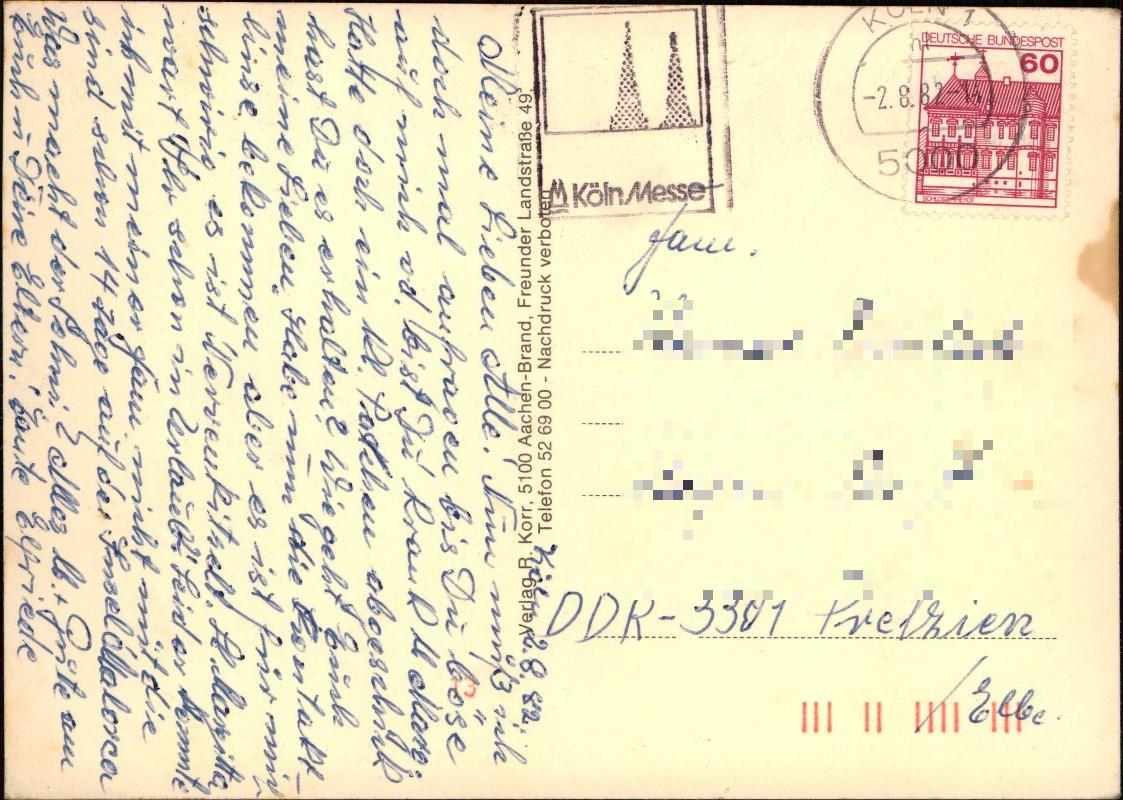 Köln 2.8.82.
Meine Lieben Alle! Nun muß ich
doch mal anfragen bis Du böse
auf mich od. bist Du krank Maria,
Hatte doch ein Kl. Päckchen abgeschickt
hast Du es erhalten? Wie geht Euch
meine Lieben, Habe nun die Kontakt-
linse bekommen aber es ist für mich
schwierig es ist Nervenkitzel. H. Marita
wart Ihr schon in Urlaub? Leider konnte
ich mit meiner Fam. nicht mit die
sind schon 14 Tage auf der Insel Mallorca
Was macht der Sohni? Alles lb. Grüße an
Euch u. Deine Eltern. Tante Elfriede
Verlag R. Korr, 5100 Aachen-Brand, Freunder Landstraße 49
Telefon 52 69 00 - Nachdruck verboten
Köln Messe
KÖLN 1
-2.8.82-14
5000
DEUTSCHE BUNDESPOST
60
Fam.
DDR-3301 Pretzien
/Elbe.